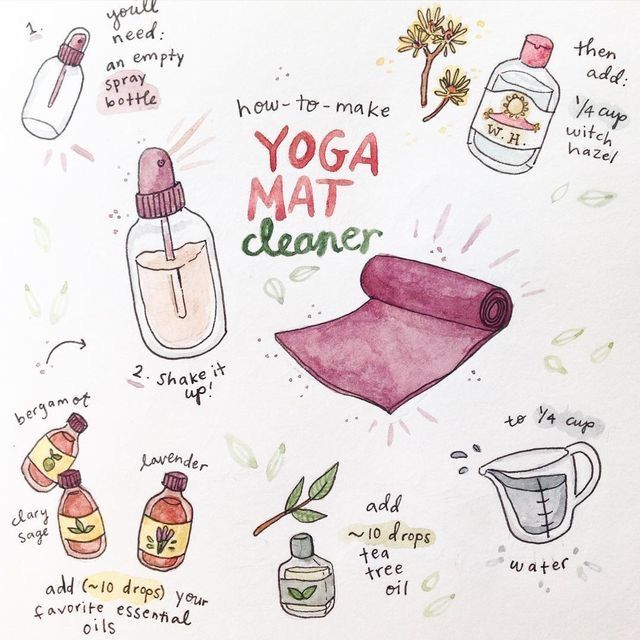 how-to-make
YOGA
MAT
cleaner
1.
you'll
need:
an empty
spray
bottle
then
add:
1/4 cup
witch
hazel
W.H.
to 1/4 cup
water
add
~10 drops
tea
tree
oil
bergamot
clary
sage
lavender
add (~10 drops) your
favorite essential
oils
2. shake it
up!